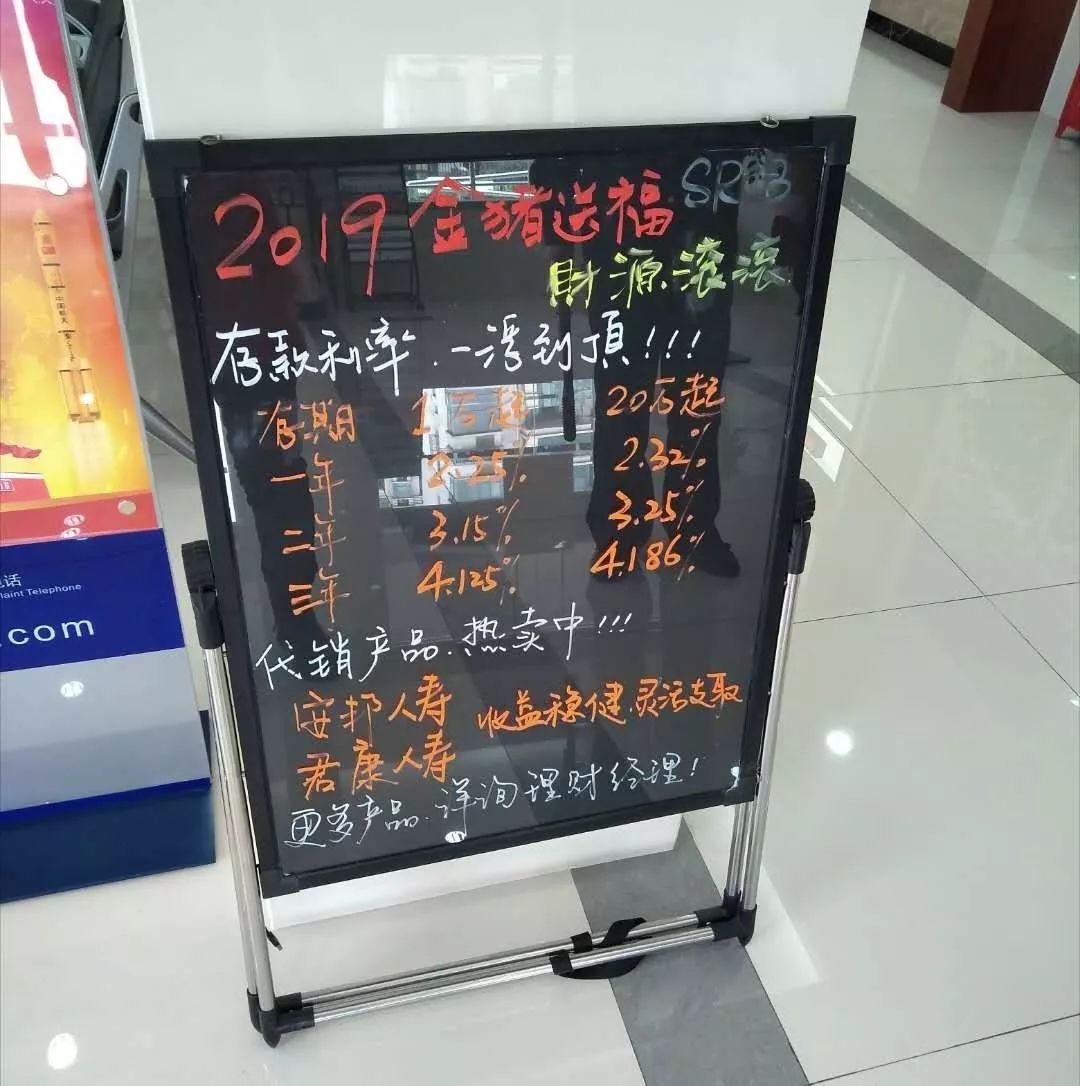 2019 金猪送福
財源滚滚
存款利率.一浮到頂!!!
存期 1万起 20万起
一年 2.25% 2.32%
二年 3.15% 3.25%
三年 4.125% 4.186%
代销产品.热卖中!!!
安邦人寿 收益稳健.灵活支取
君康人寿
更多产品.详询理财经理!
中国航天
话
laint Telephone
.com